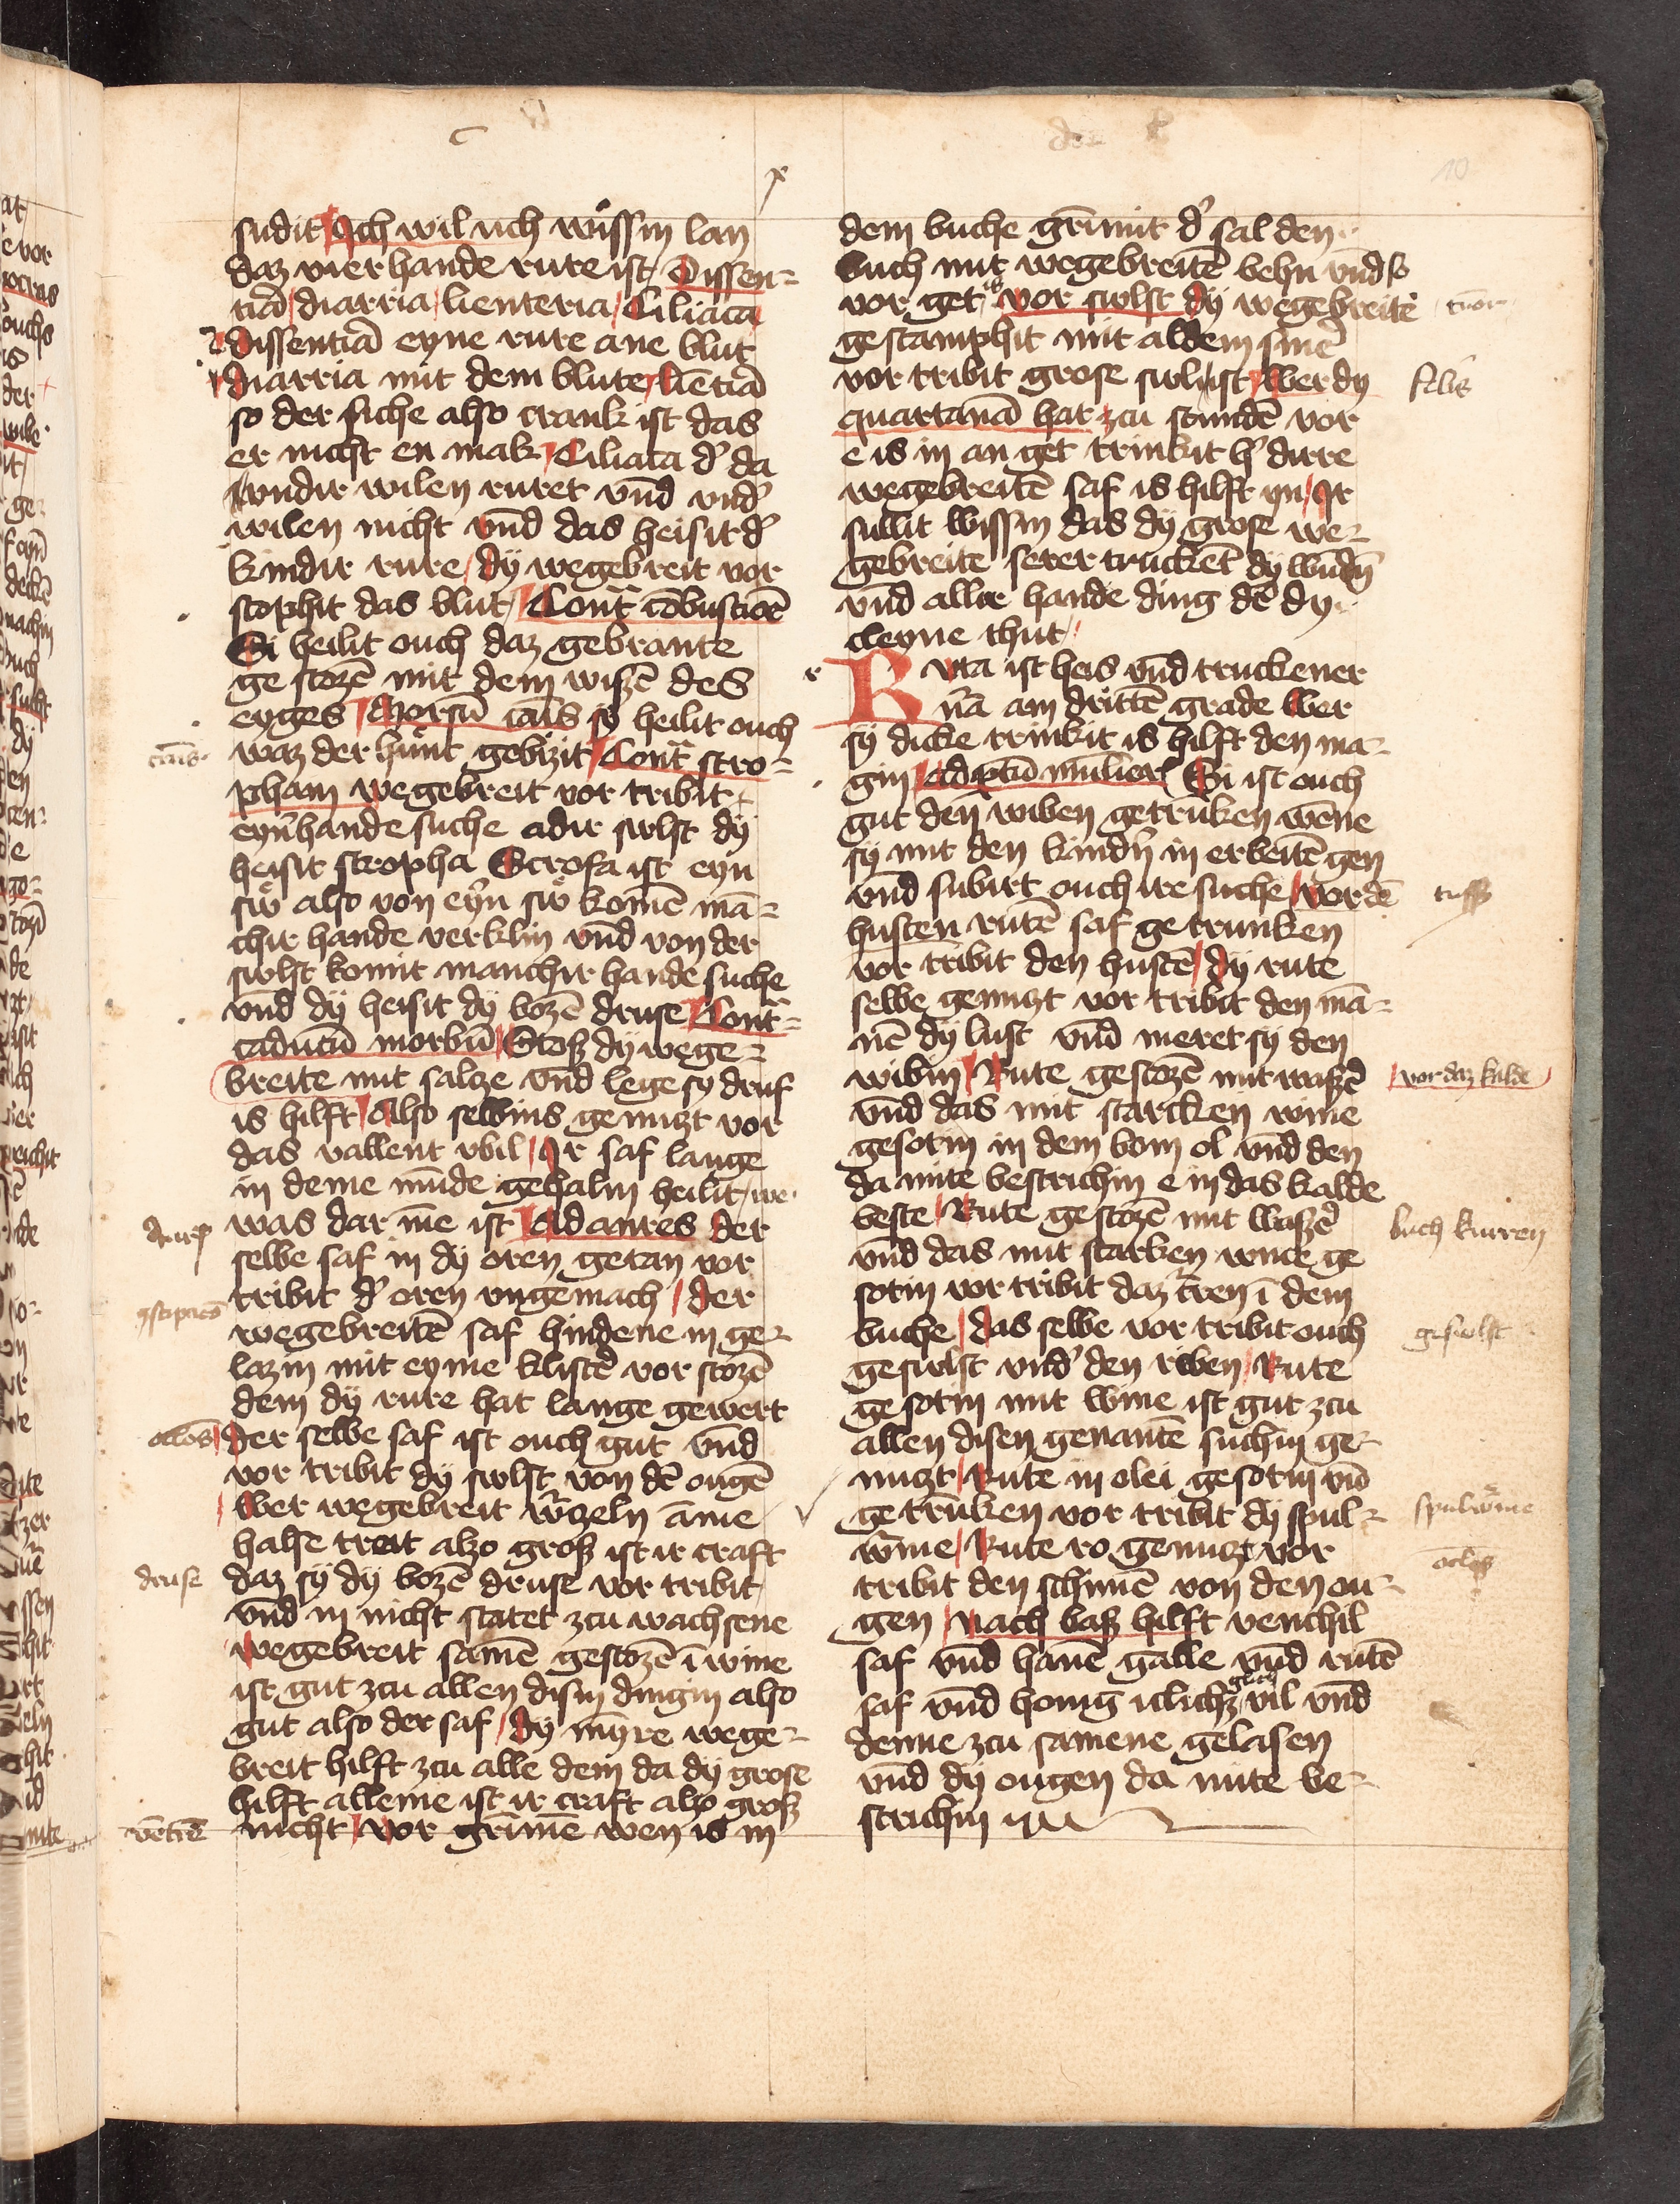 sudit Ich wil uch wissin lan
daz vier hande rure ist Dissen=
tiā diarria lienteria Ciliaca
dissentiā eyne rure ane blut
diarria mit dem blute liētiā
so der suche also crank ist das
er nicht en mak Ciliaca d' da
vndir wilen ruret vnd vnd'
wilen nicht vnd das heisit d'
kindir rure dÿ wegebreit vor
stophit das blut Contᵃ cōbustioē
Si heilit ouch daz gebrante
ge stozē mit dem wizē des
eyges Morsū canis so heilit ouch
waz der hunt gebizit Contᵃ stro=
pham wegebreit vor tribit
eyn'hande suche adir swlst dÿ
heisit stropha Scrofa ist eyn
sw also von eyn' sw komē mā=
chir hande verklin vnd von der
swlst komit manchir hande suche
vnd dÿ heisit dÿ bozē druse Contᵃ=
caducū morbū Stosz dÿ wege=
breite mit salcze vnd lege sy druf
is hilft Also selbins genuczt vor
das vallent vbil Ir saf lange
in deme mūde gehaldin heilit we
was dar īne ist Ad aures der
selbe saf in dÿ oren getan vor
tribit d' oren vngemach der
wegebreitē saf hindene in ge=
lazin mit eyme klistē vor stozē
dem dÿ rure hat lange gewert
der selbe saf ist ouch gut vnd
vor tribit dÿ swlst von dē ougē
Wer wegebreit w'czeln āme
halse treit alzo grosz ist ir craft
daz sÿ dÿ bozē druse vor tribit
vnd in nicht statet zcu wachsene
wegebreit samē gestozē ī wine
ist gut zcu allen disin dingin also
gut also der saf dÿ mīyre wege=
breit hilft zcu alle dem da dÿ grose
hilft alleine ist ir craft alzo grosz
nicht vor grīmē wen is in
canis
aures
9stipacō
oclos
druse
ventrē
dem buche grīmit d' sal den
buch mit wegebreitē behn vnd so
vor get is vor swlst dÿ wegebreite
gestamphit mit aldem smē
vor tribit grose swlist Wer dy
quartanā hat zcu stundē vor
e is in an get trinkit h' dirre
wegebreitē saf is hilft yn Ir
sullit wissin das dÿ grose we=
gebreite serer truckēt dÿ wūdn'
vnd aller hande ding dē dy
cleyne thut
Ruta ist heis vnd truckener
n'a am drittē grade Wer
sÿ dicke trinkit is hilft den ma=
gin Ad ptū mulier Si ist ouch
gut den wiben getrūken wēne
sÿ mit den kindn' in erbeitē gen
vnd subirt ouch ire suche vor dē
husten rutē saf ge trunken
vor tribit den hustē dÿ rute
selbe genuczt vor tribit den mā=
nē dÿ lust vnd meret sÿ den
wibin Rute gestozē mit wasz'
vnd das mit starcken wine
gesotin in dem bom ol vnd den
da mite bestrichin e in das kalde
beste Rute gestozē mit wasz'
vnd das mit starken wine ge
sotin vor tribit daz kren ī dem
buche das selbe vor tribit ouch
geswlst vnd' den riben Rute
ge sotin mit wine ist gut zcu
allen disen genantē suchin ge=
nuczt Rute in olei gesotin vnd
ge trūken vor tribit dÿ spul=
w'me Rute ro genuczt vor
tribit den schimē von den ou=
gen Nach basz hilft venchil
saf vnd hanē galle vnd rutē
saf vnd honig iclichz glich vil vnd
denne zcu samene gelasen
vnd dÿ ougen da mite be=
strichin
tuor
febris
tussz
vor daz kalde
buch kurren
geswlst
spulw'me
oclos
10